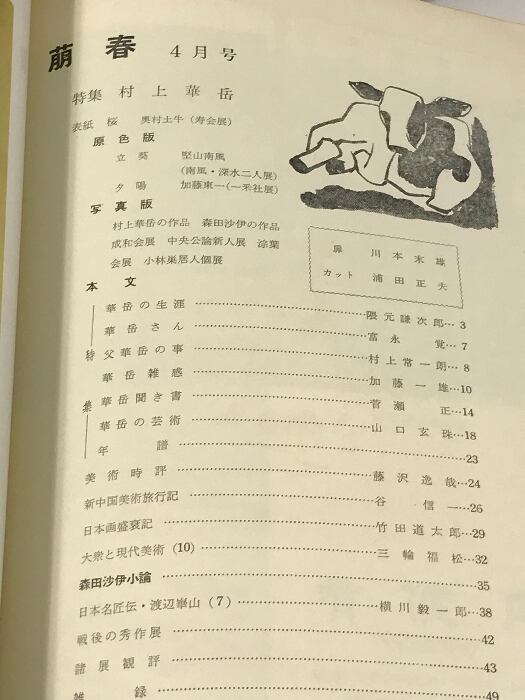 萠春 4月号
特集 村上華岳
表紙 桜 奥村土牛(寿会展)
原色版
立葵 堅山南風
(南風・深水二人展)
夕陽 加藤東一(一采社展)
写真版
村上華岳の作品 森田沙伊の作品
成和会展 中央公論新人展 淙葉
会展 小林巣居人個展
扉 川本末雄
カット 浦田正夫
本文
特集
華岳の生涯 隈元謙次郎… 3
華岳さん 富永 覚… 7
父華岳の事 村上常一朗… 8
華岳雑感 加藤一雄…10
華岳聞き書 菅瀬 正…14
華岳の芸術 山口玄珠…18
年譜 23
美術時評 藤沢逸哉…24
新中国美術旅行記 谷 信一…26
日本画盛衰記 竹田道太郎…29
大衆と現代美術(10) 三輪福松…32
森田沙伊小論 35
日本名匠伝・渡辺崋山(7) 横川毅一郎…38
戦後の秀作展 42
諸展観評 43
雑録 49